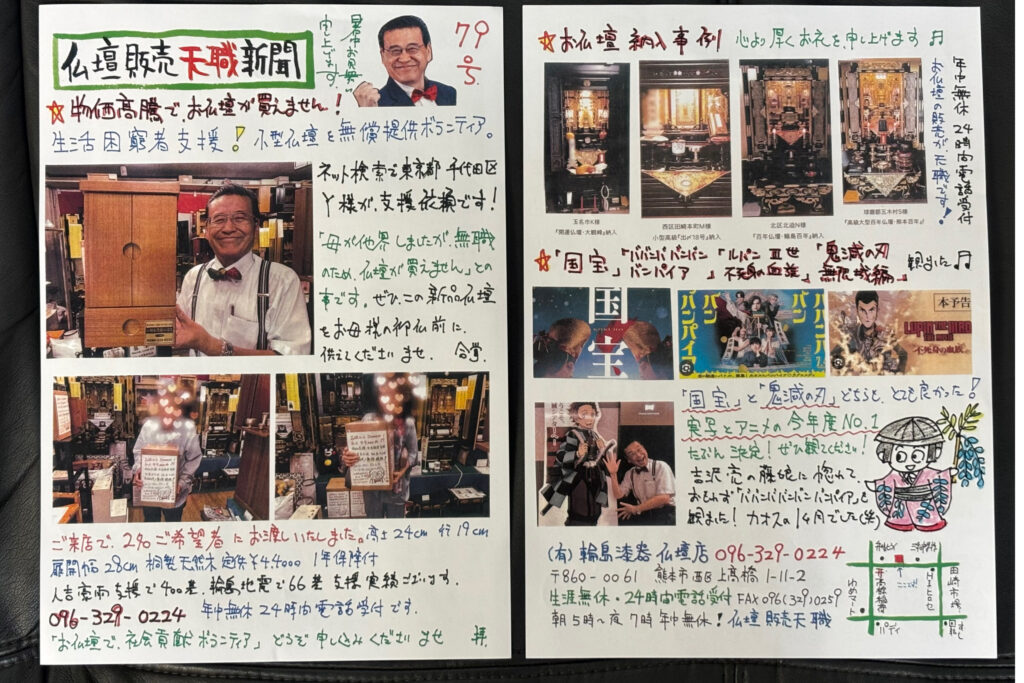 仏壇販売天職新聞
暑中お見舞い
申し上げます。
79
0.5.
☆物価高騰でお仏壇が買えません!
生活困窮者支援!小型仏壇を無償提供ボランティア。
ネット検索で東京都千代田区
Y様が、支援依頼です!
「母が他界しましたが、無職
のため、仏壇が買えません」との
事です。ぜひ、この新品仏壇
をお母様の御仏前に、
供えてくださいませ。合掌.
ご来店で、2名ご希望者にお渡しいたしました。高さ24cm 行19cm
扉開幅28cm 桐製天然木 定価¥44000 1年保障付
人吉豪雨支援で400基、輪島地震で66基支援実績ございます。
096-329-0224 年中無休24時間電話受付です.
「お仏壇で、社会貢献ボランティア」どうぞ申し込みくださいませ 拝.
☆お仏壇 納入事例 心より厚くお礼を申し上げます♬
年中無休 24時間電話受付
お仏壇の販売が、天職です!
玉名市K様
『開運仏壇・大観峰』納入
西区田崎本町M様
小型高級『出〆18号』納入
北区北迫N様
『百年仏壇・輪島百年』納入
球磨郡五木村S様
『高級大型百年仏壇・熊本百年』
☆「国宝」「ババンババンバンバンパイア」「ルパン三世 不死身の血族」「鬼滅の刃 無限城編」観ました♬
国宝
ババンババンバンバンパイア
本予告
LUPIN THE IIIRD
不死身の血族
「国宝」と「鬼滅の刃」どちらも、とても良かった!
実写とアニメの今年度NO.1
たぶん決定!ぜひ観てください!
吉沢亮の藤娘に惚れて、
おもわず「ババンババンバンバンパイア」も
観ました!カオスの1ヶ月でした(笑)
(有)輪島漆器仏壇店 096-329-0224
〒860-0061 熊本市西区上高橋1-11-2
生涯無休・24時間電話受付 FAX096(329)0259
朝5時〜夜7時 年中無休!仏壇販売天職
田崎市場
ここだよ
高橋稲荷